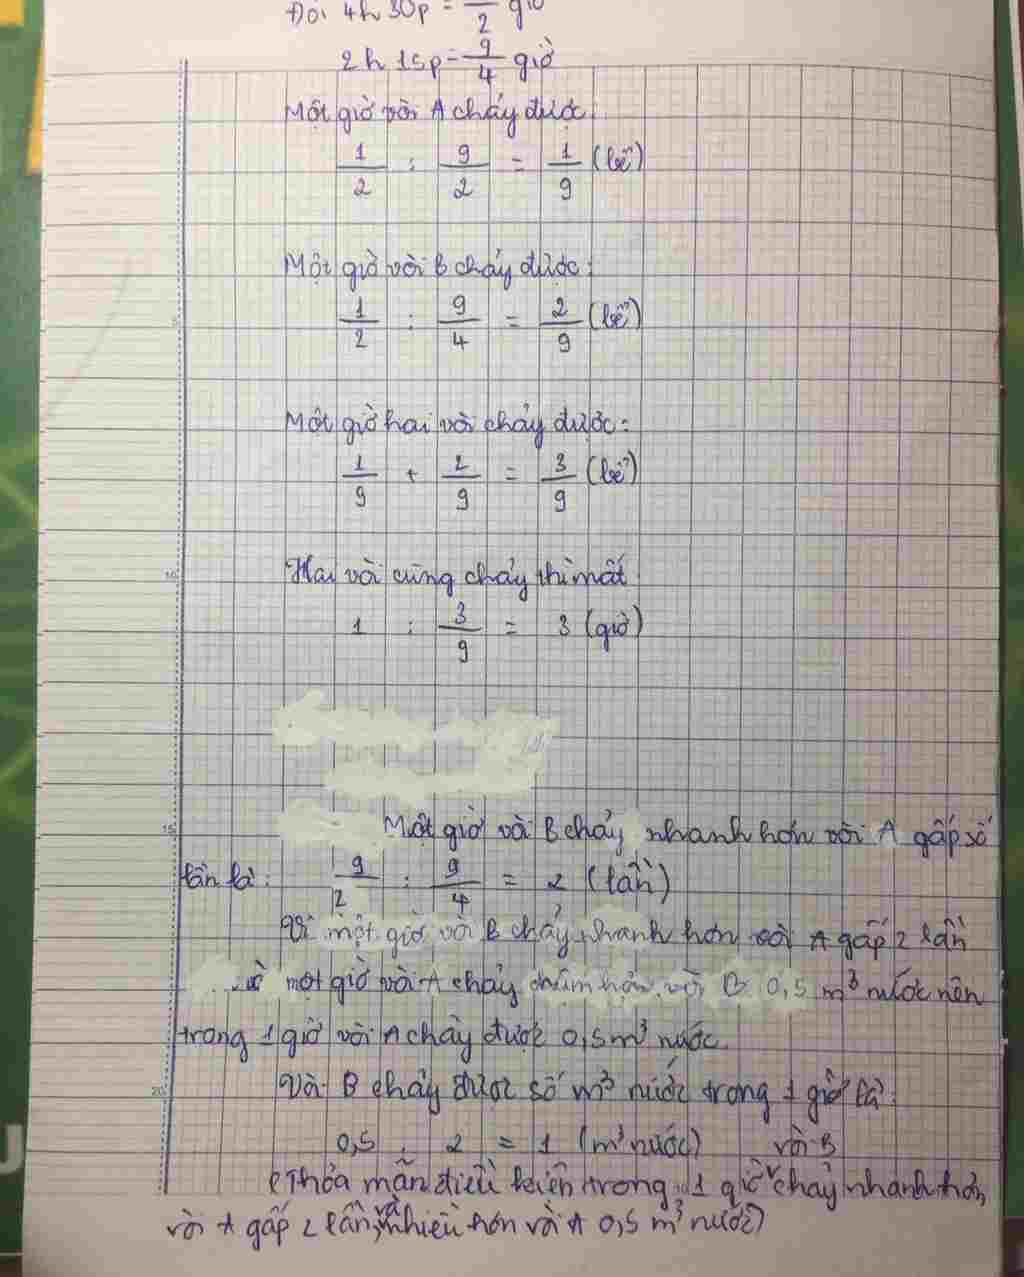 Đổi 4h 30p = 2 giờ
2h 15p = 9/4 giờ
Một giờ vòi A chảy được:
1/2 : 9/2 = 1/9 (bể)
Một giờ vòi B chảy được:
1/2 : 9/4 = 2/9 (bể)
Một giờ hai vòi chảy được:
1/9 + 2/9 = 3/9 (bể)
Hai vòi cùng chảy thì mất
1 : 3/9 = 3 (giờ)
Một giờ vòi B chảy nhanh hơn vòi A gấp số
lần là: 9/2 : 9/4 = 2 (lần)
Vì một giờ vòi B chảy nhanh hơn vòi A gấp 2 lần
một giờ vòi A chảy chậm hơn vòi B 0,5 m³ nước nên
trong 1 giờ vòi A chảy được 0,5m³ nước.
Vòi B chảy được số m³ nước trong 1 giờ là:
0,5 . 2 = 1 (m³ nước) vòi B
(Thỏa mãn điều kiện trong 1 giờ chảy nhanh hơn
vòi A gấp 2 lần, và nhiều hơn vòi A 0,5 m³ nước)